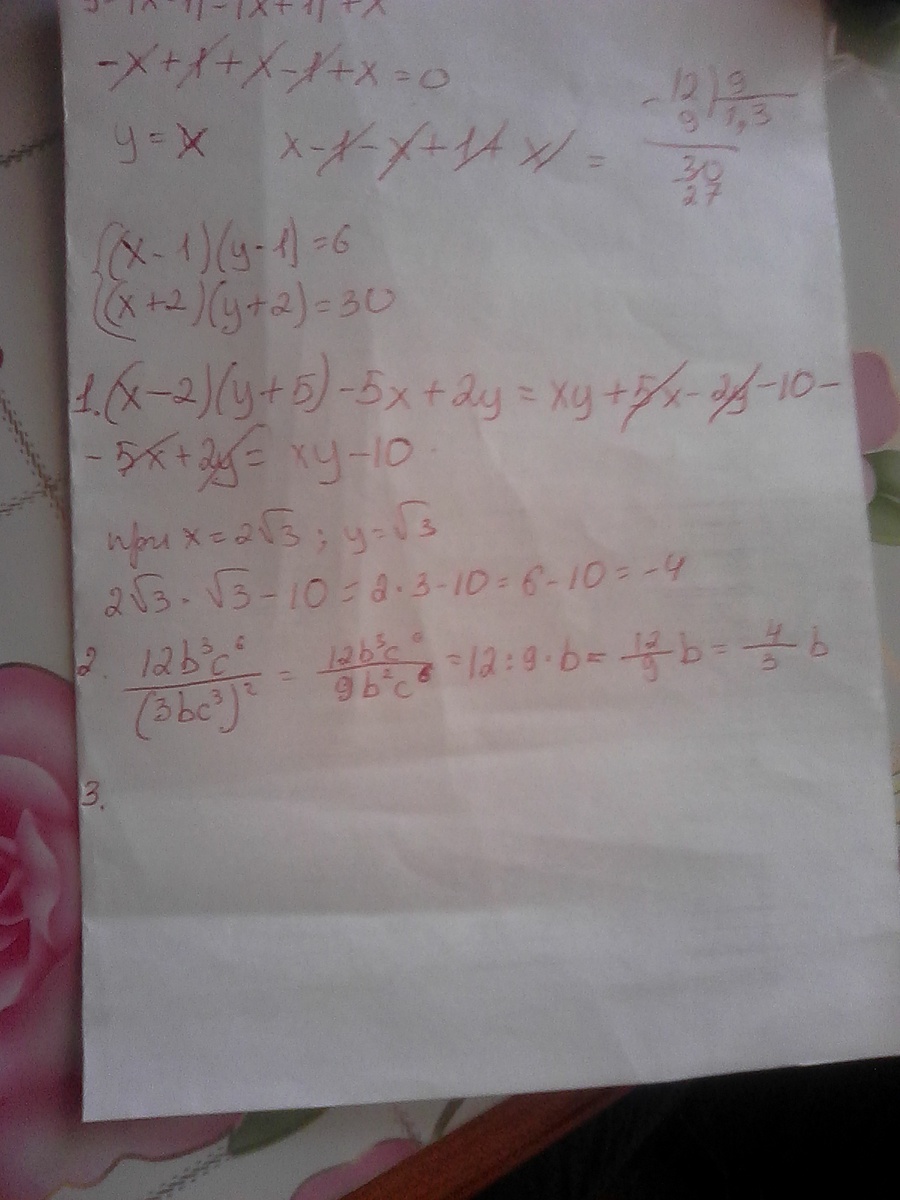 -x+1+x-1+x=0
y=x x-1-x+1+x =
12 9
- 9 1,3
30
27
{(x-1)(y-1)=6
(x+2)(y+2)=30
1.(x-2)(y+5)-5x+2y=xy+5x-2y-10-
-5x+2y= xy-10
при x=2√3; y=√3
2√3·√3-10=2·3-10=6-10=-4
2. 12b³c⁶/(3bc³)² = 12b³c⁶/9b²c⁶ =12:9·b= 12/9 b= 4/3 b
3.